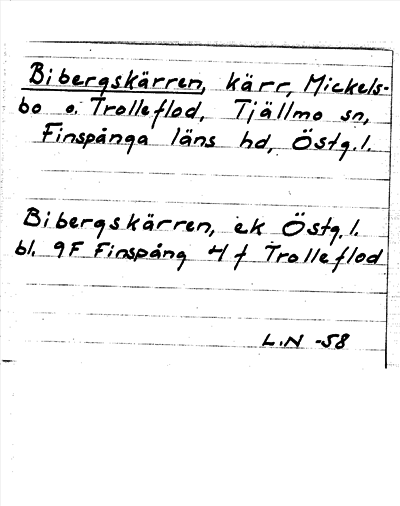 Bibergskärren, kärr, Mickels-
bo o. Trolleflod, Tjällmo sn,
Finspånga läns hd, Östg. l.
Bibergskärren, ek Östg. l.
bl. 9F Finspång 4 f Trolleflod
L.N -58